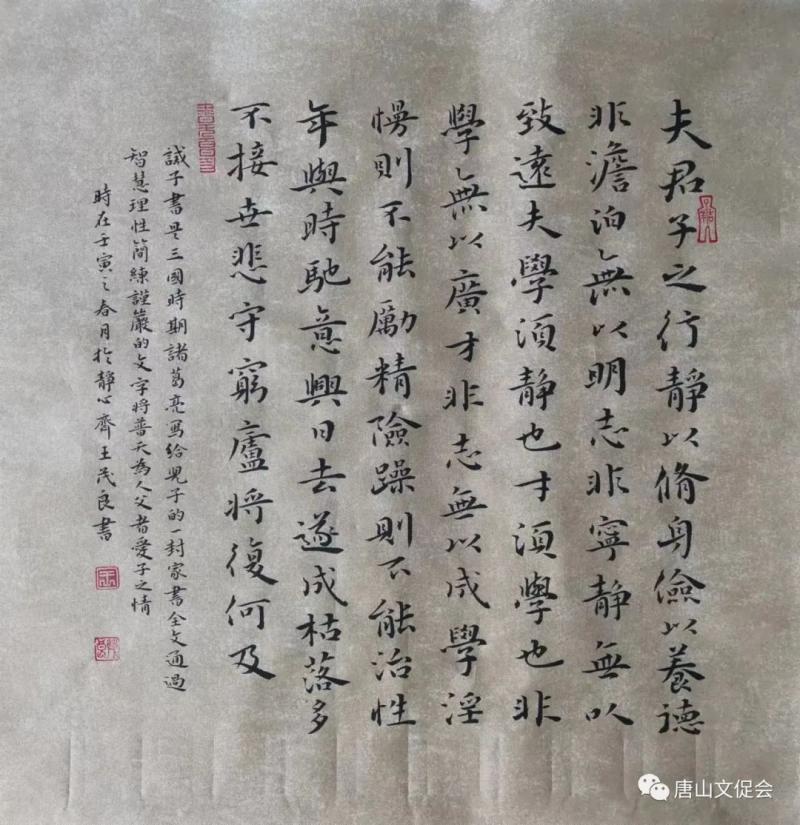 夫君子之行靜以脩身儉以養德
非澹泊無以明志非寧靜無以
致遠夫學須靜也才須學也非
學無以廣才非志無以成學淫
慢則不能勵精險躁則不能治性
年與時馳意與日去遂成枯落多
不接世悲守窮廬將復何及
誡子書是三國時期諸葛亮寫給兒子的一封家書全文通過
智慧理性簡練謹嚴的文字將普天為人父者愛子之情
時在壬寅之春月於靜心齋王茂良書
唐山文促会